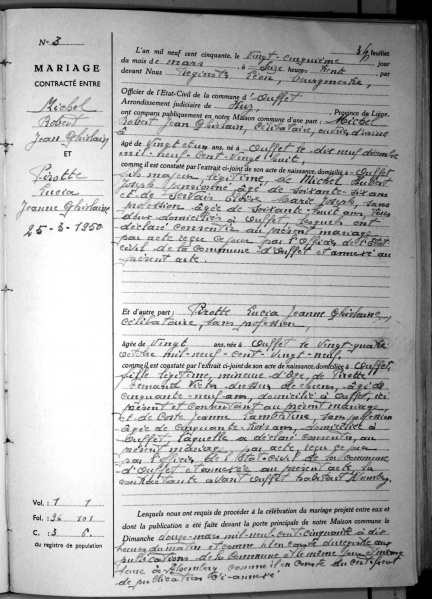 N° 3
MARIAGE
CONTRACTÉ ENTRE
Michel
Robert
Jean Ghislain
ET
Pirotte
Lucia
Jeanne Ghislaine
25-3-1950
Vol. : 1 1
Fol. : 36 101
C. : 3
du registre de population
feuillet
L'an mil neuf cent cinquante, le vingt cinquième jour
du mois de mars, à seize heures trente, par
devant Nous Léon bourgmestre,
Officier de l'Etat-Civil de la commune d'Ouffet
Arrondissement judiciaire de Huy, Province de Liège,
ont comparu publiquement en notre Maison commune d'une part : Michel
Robert Jean Ghislain, célibataire, ouvrier
âgé de vingt et un ans, né à Ouffet le dix neuf décembre
mil-neuf-cent-vingt-huit,
comme il est constaté par l'extrait ci-joint de son acte de naissance, domicilié à Ouffet
fils majeur légitime, de Michel Hubert
Joseph pensionné âgé de soixante-dix ans
et de Servais Marie Joseph, sans
profession âgée de soixante-huit ans, tous
deux domiciliés à Ouffet, lesquels ont
déclaré consentir au présent mariage
par acte reçu ce jour par l'Officier de l'Etat
civil de la Commune d'Ouffet et annexé au
présent acte.
Et d'autre part : Pirotte Lucia Jeanne Ghislaine,
célibataire, sans profession,
âgée de vingt ans, née à Ouffet le vingt-quatre
octobre mil-neuf-cent-vingt-neuf.
comme il est constaté par l'extrait ci-joint de son acte de naissance, domiciliée à Ouffet,
fille légitime, mineure d'âge, de Pirotte
Fernand Victor âgé de
cinquante-neuf ans, domicilié à Ouffet, ici
présent et consentant au présent mariage
et de Jeanne sans profession
âgée de cinquante-trois ans, domiciliée à
Ouffet, laquelle a déclaré consentir, au
présent mariage par acte reçu ce jour
par l'officier de l'Etat-civil de la Commune
d'Ouffet et annexé au présent acte, la
contractante avant Ouffet habitant
Lesquels nous ont requis de procéder à la célébration du mariage projeté entre eux
et dont la publication a été faite devant la porte principale de notre Maison commune le
Dimanche douze mars mil-neuf-cent-cinquante à dix
heures du matin et comme il en conste du registre aux
publications de la Commune et le même jour et même
heure à comme il en conste du certificat
de publication ci-annexé